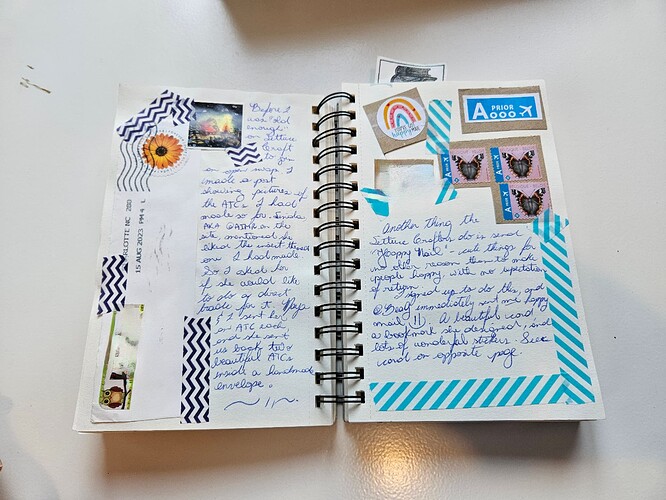 Before I
was "old
enough"
on Lettuce
Craft
to go
on open swap I
made a post
showing pictures of
the ATCs I had
made so far. Linda
AKA
the
site, mentioned she
liked the insect themed
one I had made.
So I asked her
if she would like
to do a direct
trade for it. Yep
I sent her
an ATC each
and she sent
us back two
beautiful ATCs
inside a handmade
envelope.
LOTTE NC 280
15 AUG 2023 PM 4 L
happy mail
A PRIOR
Another thing the
Lettuce Crafters do is send
"Happy Mail" - send things for
no other reason than to make
people happy, with no expectation
of return.
I signed up to do this, and
immediately sent me happy
email !! A beautiful card
a bookmark she designed, and
lots of wonderful stickers. See
card on opposite page.